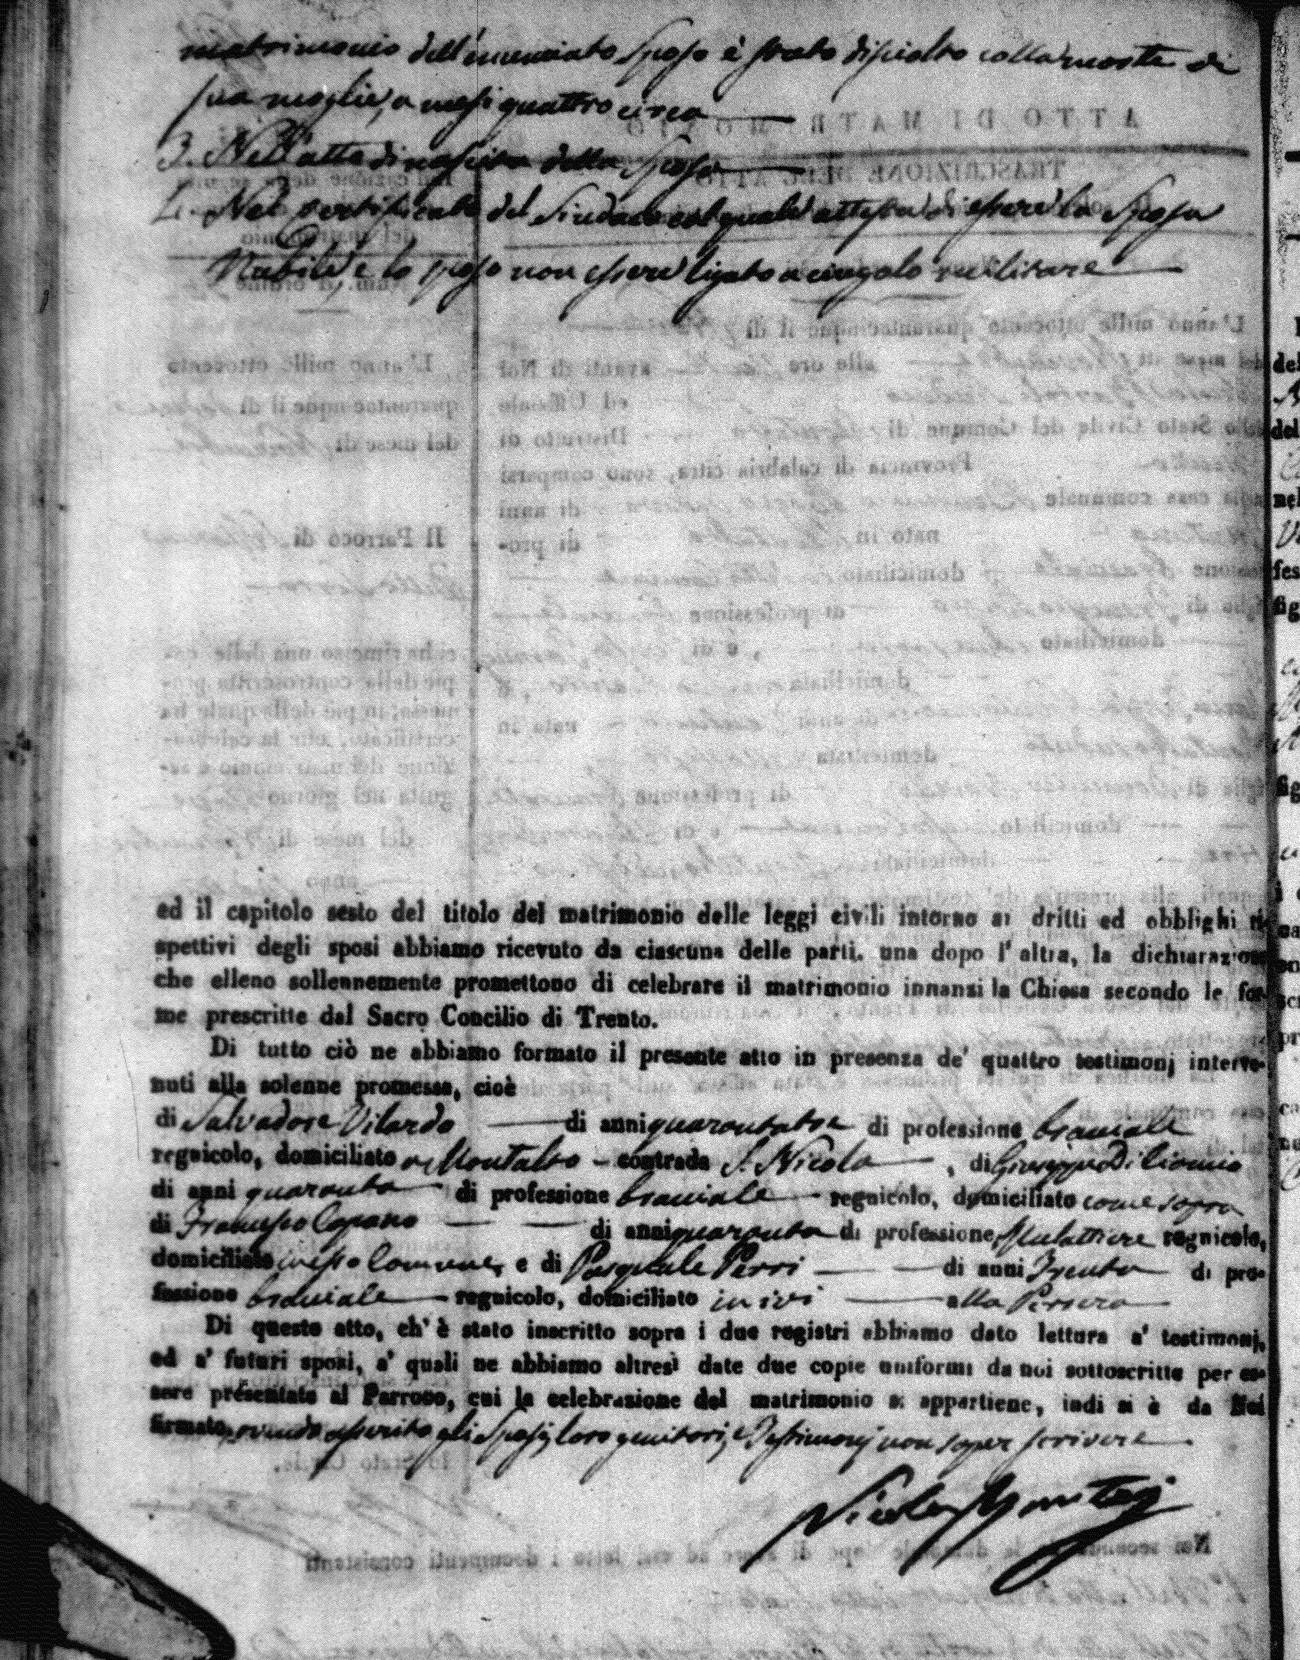 matrimonio dell'enunciato Sposo è stato disciolto colla morte di
sua moglie, a mesi quattro circa
3. Nell'atto di nascita della Sposa
4. Nel certificato del Sindaco col quale attesta di essere la Sposa
Nubile e lo sposo non essere ligato a cingolo militare
ed il capitolo sesto del titolo del matrimonio delle leggi civili intorno ai dritti ed obblighi ri-
spettivi degli sposi abbiamo ricevuto da ciascuna delle parti, una dopo l'altra, la dichiarazione
che elleno sollennemente promettono di celebrare il matrimonio innanzi la Chiesa secondo le for-
me prescritte dal Sacro Concilio di Trento.
Di tutto ciò ne abbiamo formato il presente atto in presenza de' quattro testimonj interve-
nuti alla solenne promessa, cioè
di Salvadore Vilardo di anni quarantatre di professione bracciale
regnicolo, domiciliato a Montalto - contrada S. Nicola, di Giuseppe Di
di anni quaranta di professione bracciale regnicolo, domiciliato come sopra
di Francesco Capano di anni quaranta di professione Mulattiere regnicolo,
domiciliato in esso Comune, e di Pasquale Perri di anni Trenta di pro-
fessione bracciale regnicolo, domiciliato in ivi alla
Di questo atto, ch'è stato inscritto sopra i due registri abbiamo dato lettura a' testimonj,
ed a' futuri sposi, a' quali ne abbiamo altresì date due copie uniformi da noi sottoscritte per es-
sere presentate al Parroco, cui la celebrazione del matrimonio si appartiene, indi si è da Noi
firmato, avendo asserito gli Sposi, loro genitori, e Testimonj non saper scrivere
Nicola